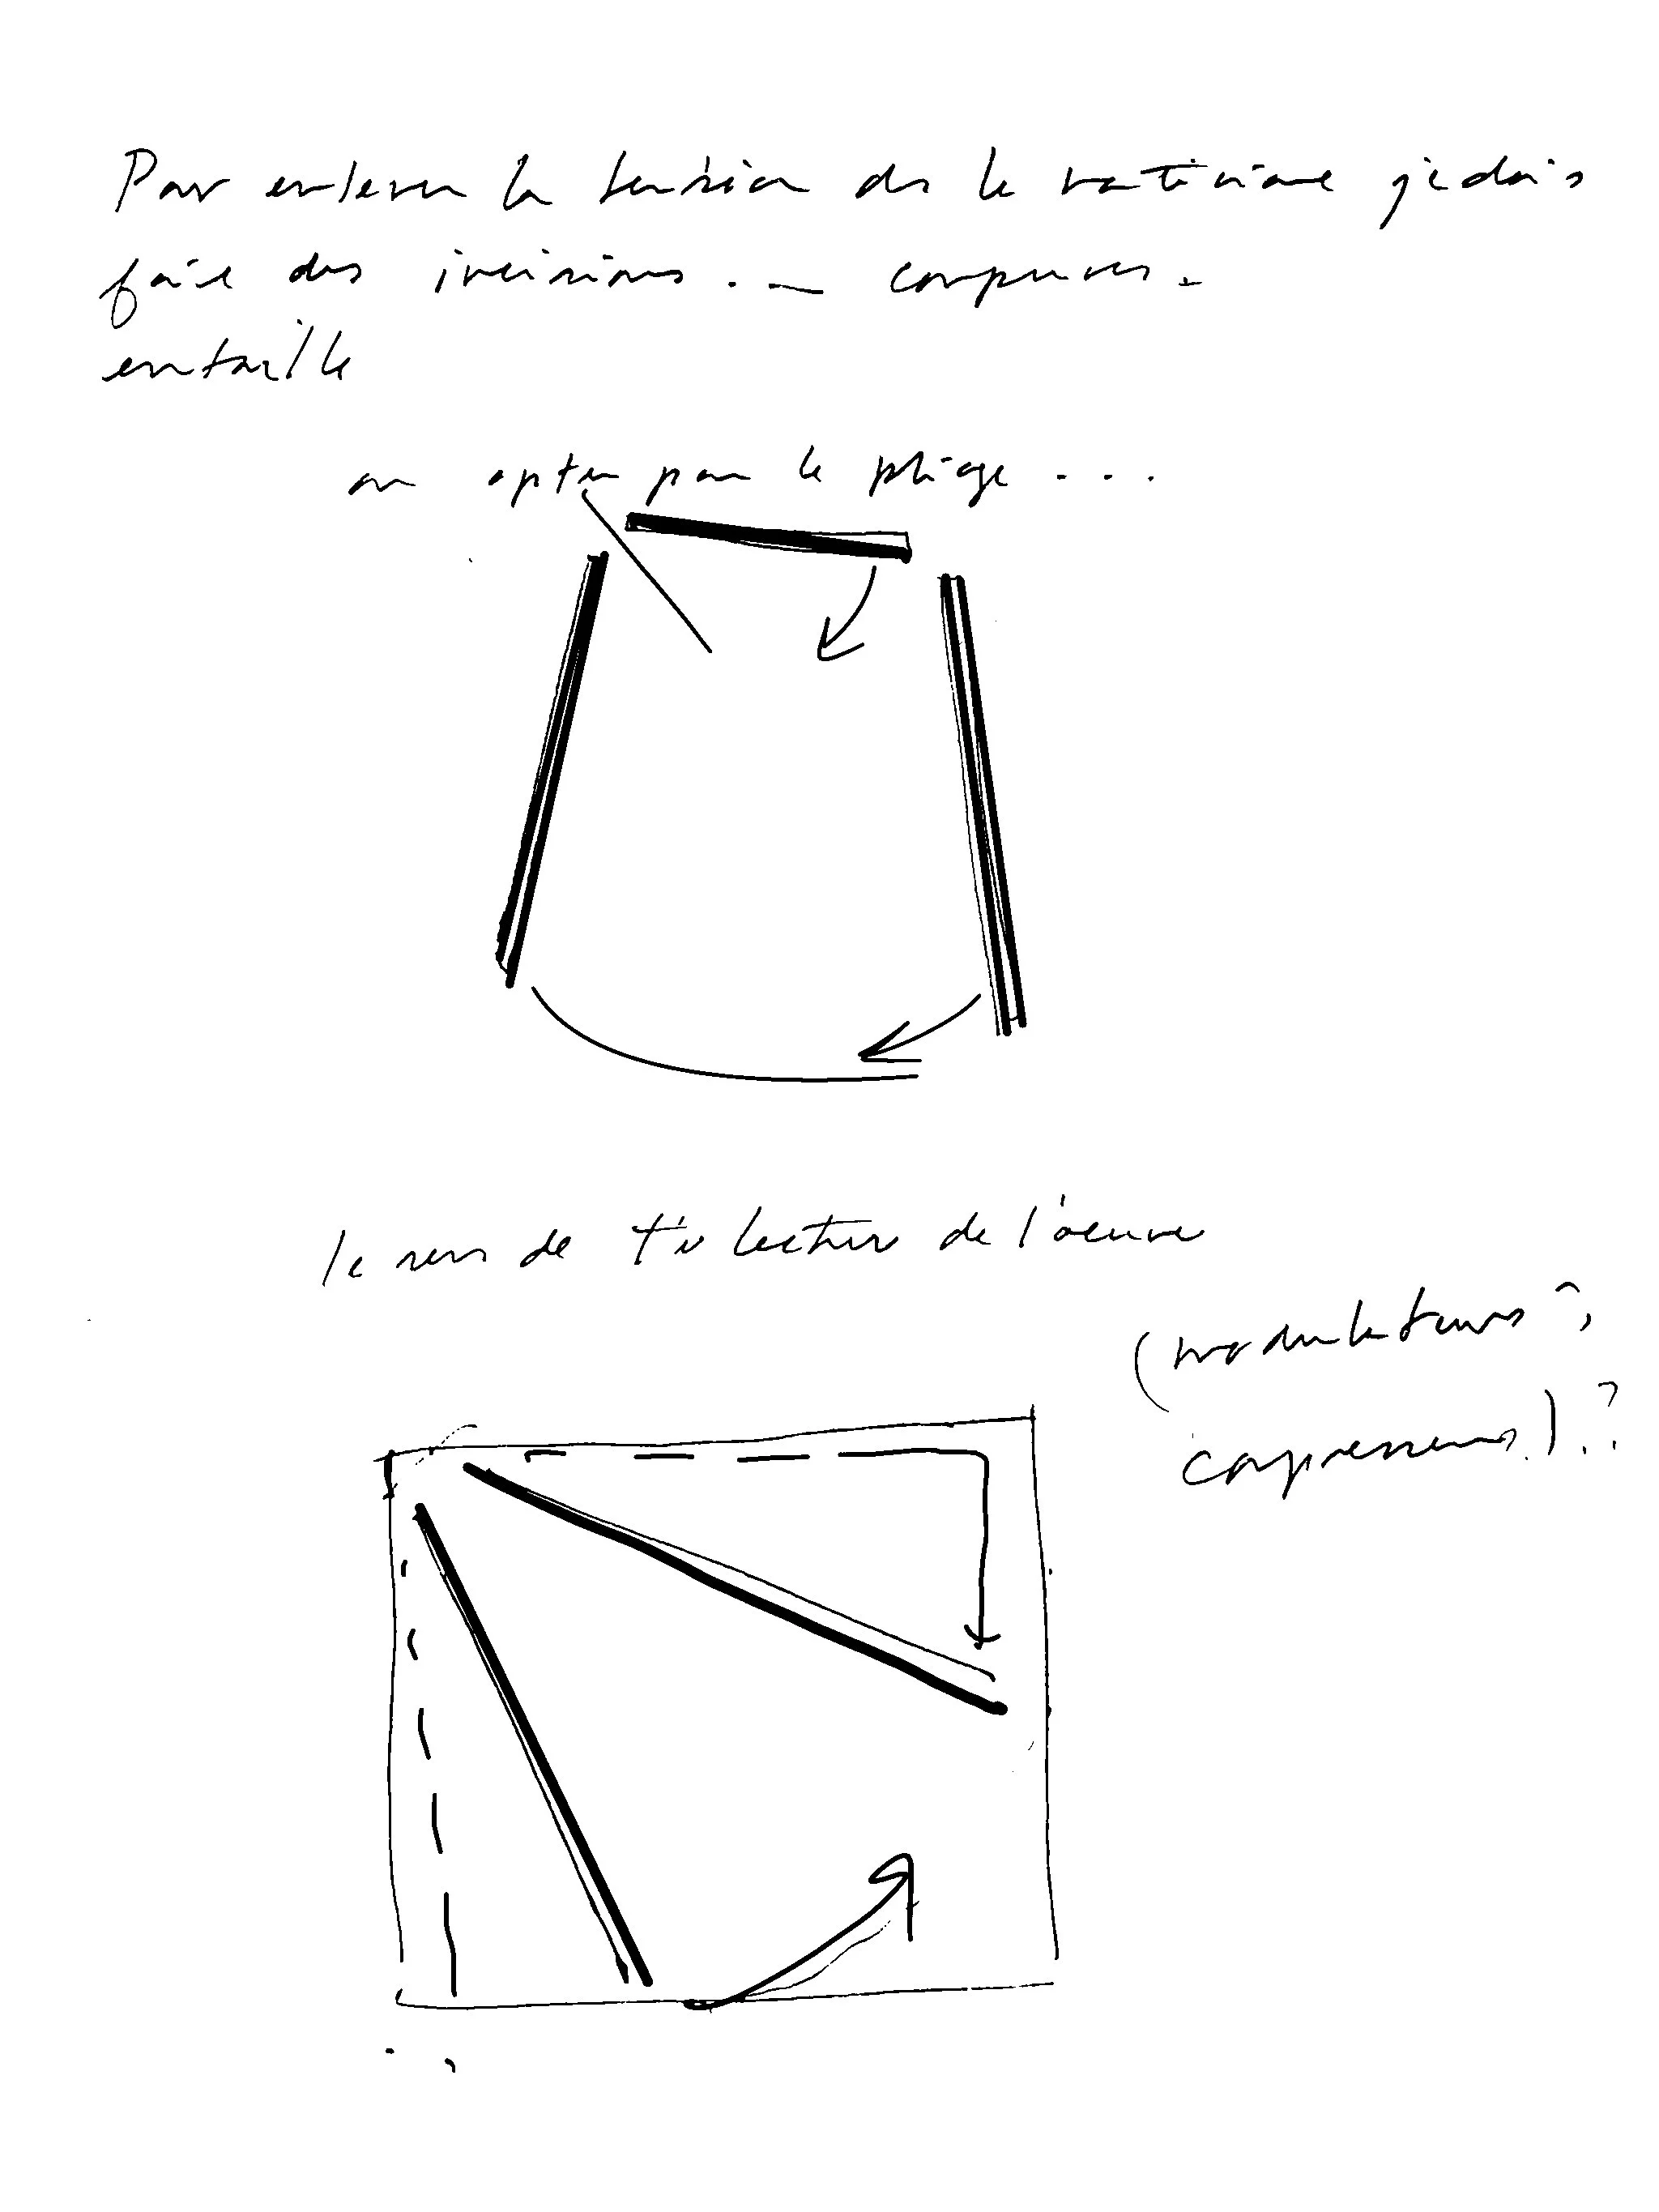 Pour enlever la tension de la je dois
faire des incisions... coupures.
entaille
ou opter pour le pliage...
le sens de lecture de l'oeuvre
(modulateurs,
compresseurs) ?